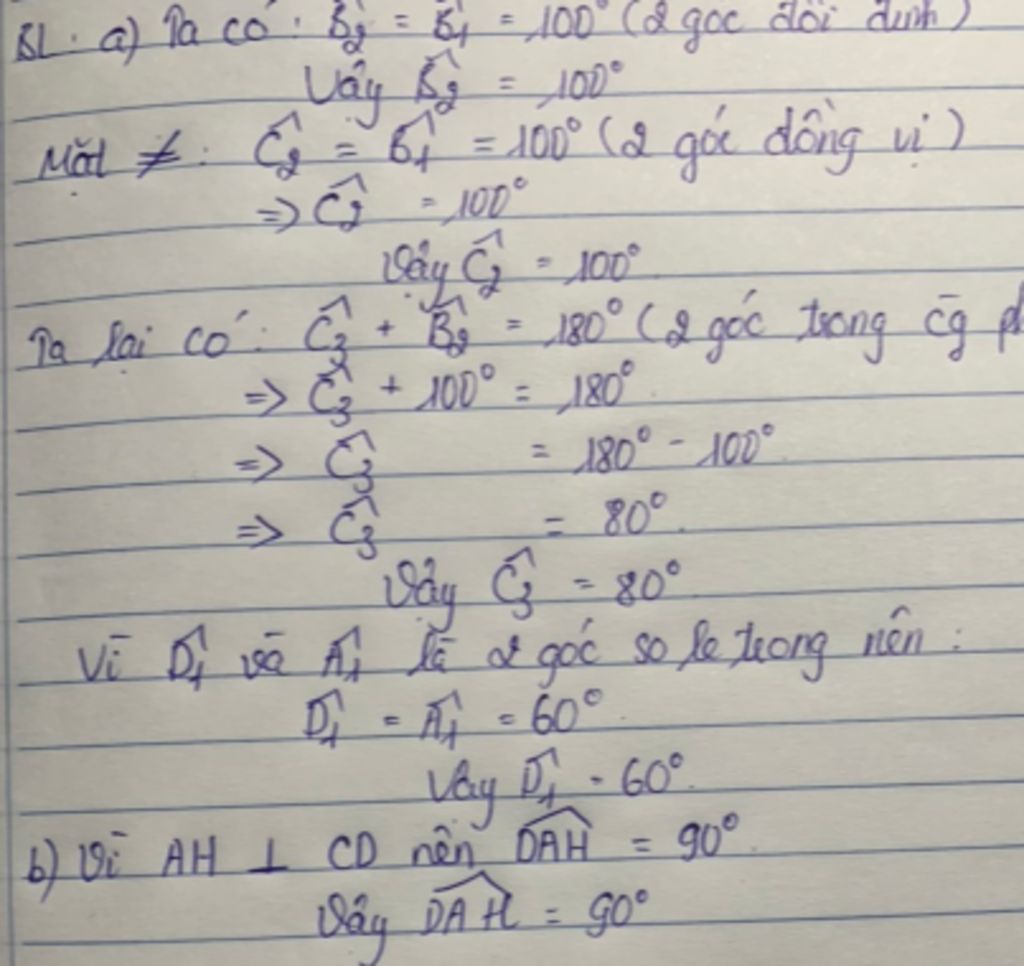 BL. a) Ta có: B̂₂ = B̂₁ = 100° (2 góc đối đỉnh)
Vậy B̂₂ = 100°
Mặt ≠: Ĉ₂ = B̂₁ = 100° (2 góc đồng vị)
=> Ĉ₂ = 100°
Vậy Ĉ₂ = 100°
Ta lại có: Ĉ₃ + B̂₂ = 180° (2 góc trong cg̅
=> Ĉ₃ + 100° = 180°
=> Ĉ₃ = 180° - 100°
=> Ĉ₃ = 80°
Vậy Ĉ₃ = 80°
Vì D̂₁ và Â₁ là 2 góc so le trong nên:
D̂₁ = Â₁ = 60°
Vậy D̂₁ = 60°
b) Vì AH ⊥ CD nên D̂AH = 90°
Vậy D̂AH = 90°